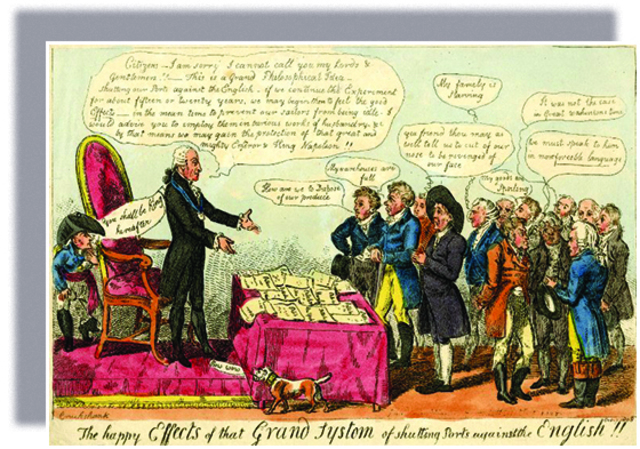 Citizens - I am sorry I cannot call you my Lords &
Gentlemen!! - This is a Grand Philosophical Idea -
shutting our Ports against the English - if we continue the Experiment
for about fifteen or twenty years, we may begin then to feel the good
Effects - in the mean time to prevent our sailors from being idle - I
would advise you to employ them in various works of husbandry &c
by that means we may gain the protection of that great and
mighty Emperor & King Napoleon!!
You shall be King
hereafter
How are we to Dispose
of our produce
My warehouses are
full
you friend thou mays as
well tell us to cut of our
nose to be revenged of
our face
My family is
Starving
My goods are
Spoiling
It was not the case
in Great Washinsons time
We must speak to him
in more forceable language
Bow wow
Cruikshank
The happy Effects of that Grand System of shutting Ports against the English!!